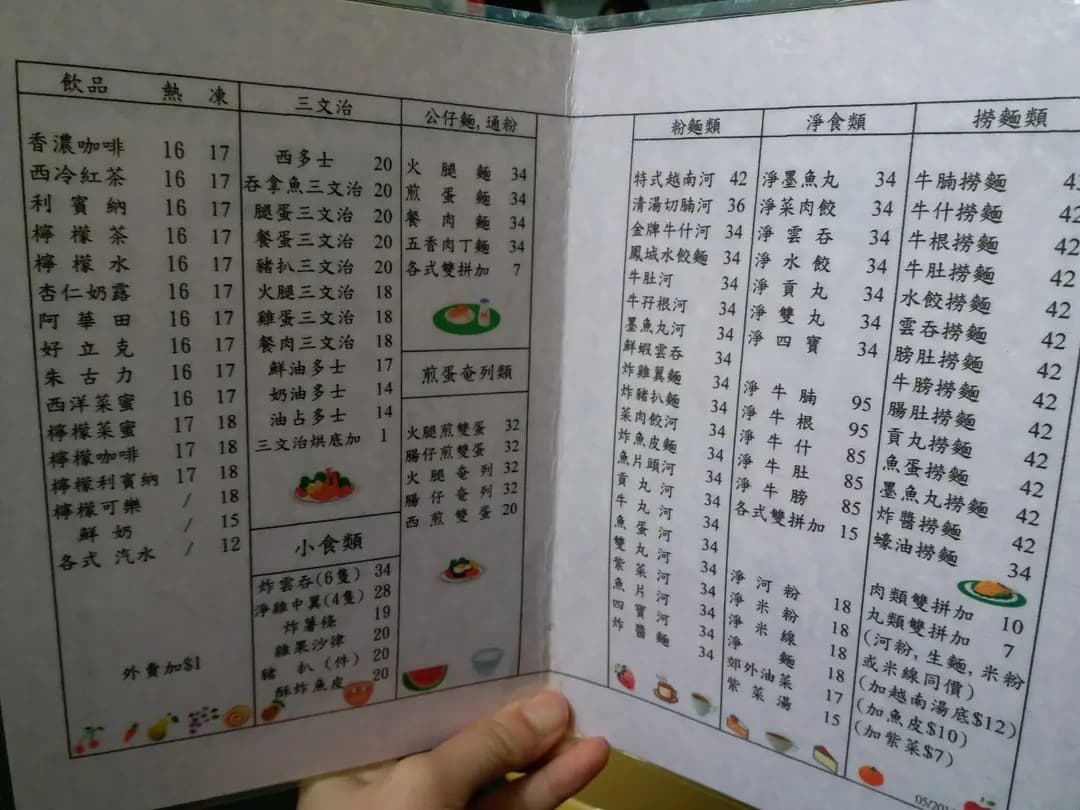 飲品 熱 凍
香濃咖啡 16 17
西冷紅茶 16 17
利賓納 16 17
檸檬茶 16 17
檸檬水 16 17
杏仁奶露 16 17
阿華田 16 17
好立克 16 17
朱古力 16 17
西洋菜蜜 16 17
檸檬菜蜜 17 18
檸檬咖啡 17 18
檸檬利賓納 17 18
檸檬可樂 / 18
鮮奶 / 15
各式 汽水 / 12
外賣加$1
三文治
西多士 20
吞拿魚三文治 20
腿蛋三文治 20
餐蛋三文治 20
豬扒三文治 20
火腿三文治 18
雞蛋三文治 18
餐肉三文治 18
鮮油多士 17
奶油多士 14
油占多士 14
三文治烘底加 1
小食類
炸雲吞(6隻) 34
淨雞中翼(4隻) 28
炸薯條 19
雜果沙律 20
豬 扒(件) 20
酥炸魚皮 20
公仔麵,通粉
火腿麵 34
煎蛋麵 34
餐肉麵 34
五香肉丁麵 34
各式雙拼加 7
煎蛋奄列類
火腿煎雙蛋 32
腸仔煎雙蛋 32
火腿奄列 32
腸仔奄列 32
西煎雙蛋 20
粉麵類
特式越南河 42
清湯切腩河 36
金牌牛什河 34
鳳城水餃麵 34
牛肚河 34
牛孖根河 34
墨魚丸河 34
鮮蝦雲吞 34
炸雞翼麵 34
炸豬扒麵 34
菜肉餃河 34
炸魚皮麵 34
魚片頭河 34
貢丸河 34
牛丸河 34
魚蛋河 34
雙丸河 34
紫菜河 34
魚片河 34
四寶河 34
炸醬麵 34
淨食類
淨墨魚丸 34
淨菜肉餃 34
淨雲吞 34
淨水餃 34
淨貢丸 34
淨雙丸 34
淨四寶 34
淨牛腩 95
淨牛根 95
淨牛什 85
淨牛肚 85
淨牛膀 85
各式雙拼加 15
淨河粉 18
淨米粉 18
淨米線 18
淨麵 18
郊外油菜 17
紫菜湯 15
撈麵類
牛腩撈麵
牛什撈麵 42
牛根撈麵 42
牛肚撈麵 42
水餃撈麵 42
雲吞撈麵 42
膀肚撈麵 42
牛膀撈麵 42
腸肚撈麵 42
貢丸撈麵 42
魚蛋撈麵 42
墨魚丸撈麵 42
炸醬撈麵 42
蠔油撈麵 34
肉類雙拼加 10
丸類雙拼加 7
(河粉,生麵,米粉
或米線同價)
(加越南湯底$12)
(加魚皮$10)
(加紫菜$7)